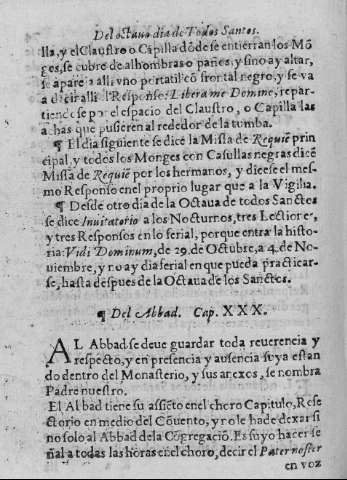 Del octauo dia de Todos Santos.
lla, y el Claustro o Capilla dõde se entierran los Mõ
ges, se cubre de alhombras o paños, y sino ay altar,
se apareja alli vno portatil cõ frontal negro, y se va
a dezir alli el Responso: Libera me Domine, repar-
tiendose por el espacio del Claustro, o Capilla las
achas que pusieren al rededor de la tumba.
¶ El dia siguiente se dice la Missa de Requiẽ prin
cipal, y todos los Monges con Casullas negras dicẽ
Missa de Requiẽ por los hermanos, y dicese el mes-
mo Responso en el proprio lugar que a la Vigilia.
¶ Desde otro dia de la Octaua de todos Sanctos
se dice Inuitatorio a los Nocturnos, tres Lectiones,
y tres Responsos en lo serial, porque entra la histo-
ria: Vidi Dominum, de 29. de Octubre, a 4. de No-
uiembre, y no ay dia serial en que pueda practicar-
se, hasta despues de la Octaua de los Sanctos.
¶ Del Abbad. Cap. XXX.
AL Abbad se deue guardar toda reuerencia y
respecto, y en presencia y ausencia suya estan
do dentro del Monasterio, y sus anexos, se nombra
Padre nuestro.
El Abbad tiene su assiẽto en el choro Capitulo, Refe
ctorio en medio del Cõuento, y no le ha de dexar si
no solo al Abbad de la Cõgregaciõ. Es suyo hacer se
ñal a todas las horas en el choro, decir el Paternoster
en voz